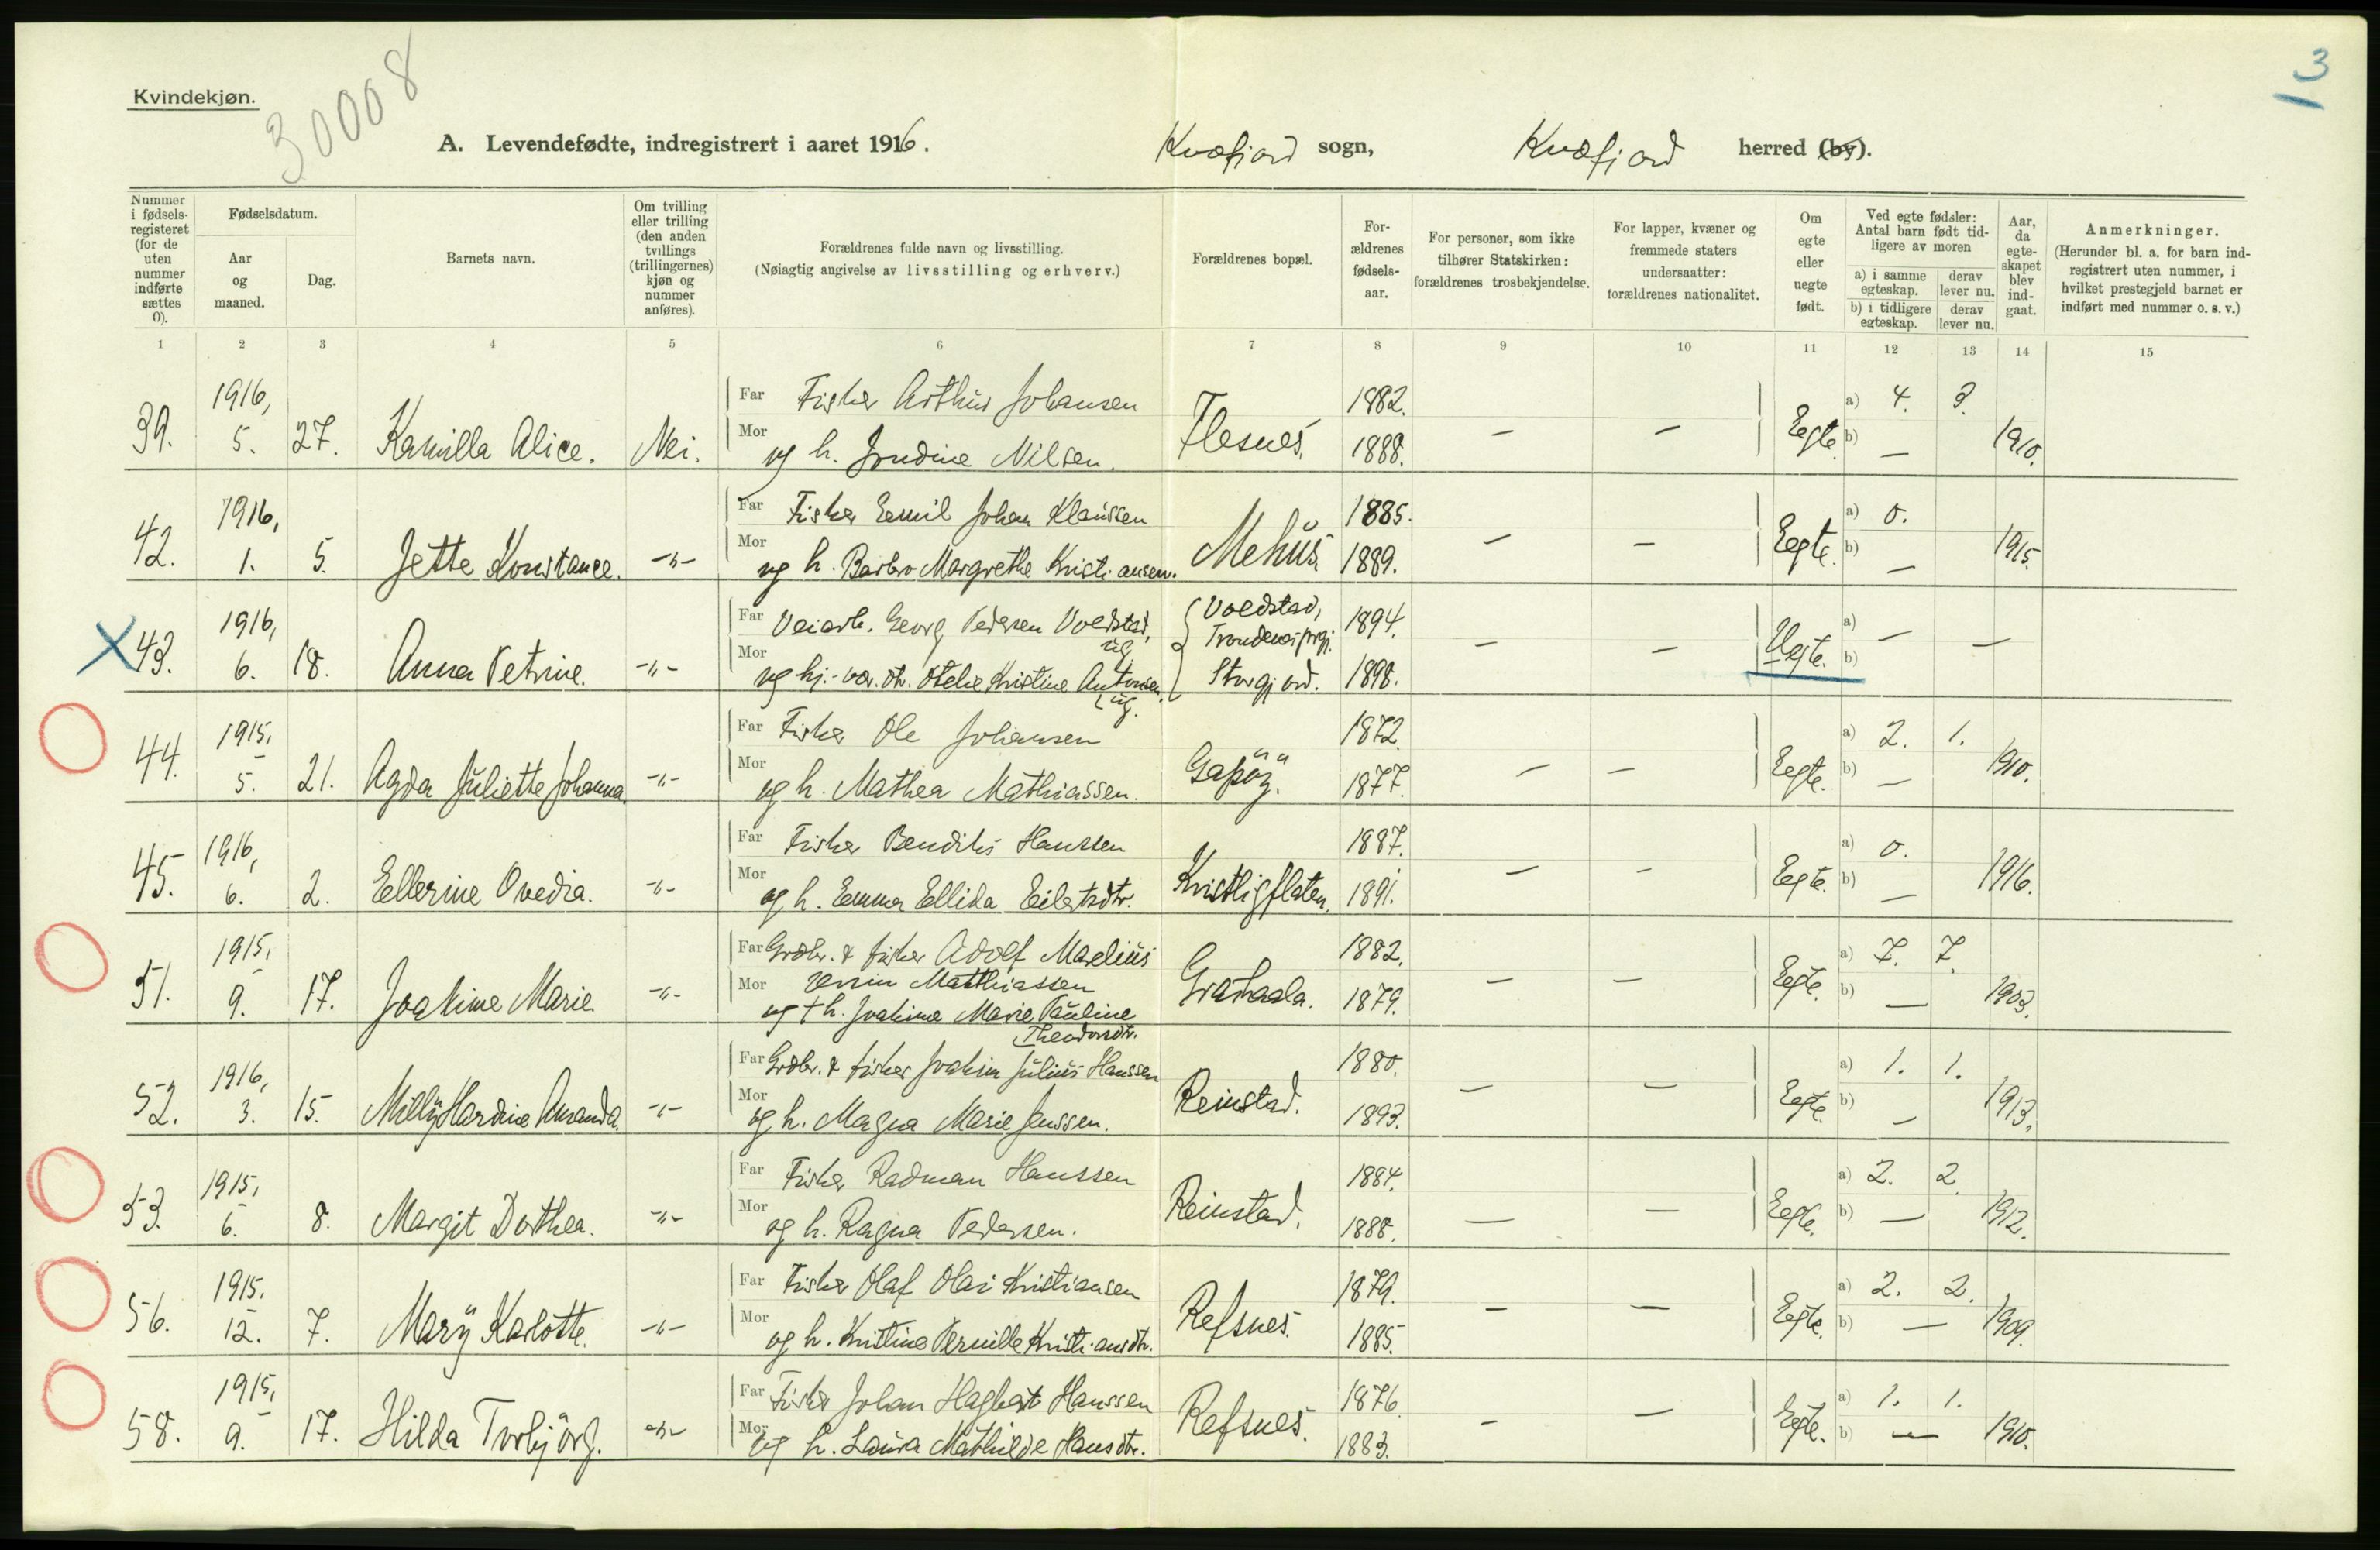 3
Kvindekjøn.
30008
A. Levendefødte, indregistrert i aaret 1916. Kvæfjord sogn, Kvæfjord herred (by).
Nummer i fødsels-registeret (for de uten nummer indførte sættes 0).
Fødselsdatum.
Aar og maaned.
Dag.
Barnets navn.
Om tvilling eller trilling (den anden tvillings (trillingernes) kjøn og nummer anføres).
Forældrenes fulde navn og livsstilling.
(Nøiagtig angivelse av livsstilling og erhverv.)
Forældrenes bopæl.
For-ældrenes fødsels-aar.
For personer, som ikke tilhører Statskirken: forældrenes trosbekjendelse.
For lapper, kvæner og fremmede staters undersaatter: forældrenes nationalitet.
Om egte eller uegte født.
Ved egte fødsler: Antal barn født tid-ligere av moren
a) i samme egteskap. derav lever nu.
b) i tidligere egteskap. derav lever nu.
Aar, da egte-skapet blev ind-gaat.
Anmerkninger.
(Herunder bl. a. for barn ind-registrert uten nummer, i hvilket prestegjeld barnet er indført med nummer o. s. v.)
1 2 3 4 5 6 7 8 9 10 11 12 13 14 15
1916, Far Fisker Arthur Johansen 1882. a) 4. 3.
39. 5. 27. Kamilla Alice. Nei. Mor og h. Jondine Nilsen. Flesnes. 1888. — — Egte. b) — 1910.
1916, Far Fisker Emil Johan Klaussen 1885. a) 0.
42. 1. 5. Jette Konstance. -"- Mor og h. Barbro Margrethe Kristiansen. Mehus 1889. — — Egte. b) — 1915.
1916, Far Veiarb. Georg Pedersen Voldstad, ug. Voldstad, Trondenes prgj. 1894. a) —
X 43. 6. 18. Anna Petrine. -"- Mor og hj.-vær. dtr. Otelie Kristine Antonsen ug. Storgjord. 1898. — — Uegte. b) —
1915, Far Fisker Ole Johansen 1872. a) 2. 1.
44. 5. 21. Agda Juliette Johanna. -"- Mor og h. Mathea Mathiassen. Gapøy. 1877. — — Egte. b) — 1910.
1916, Far Fisker Bendiks Hanssen 1887. a) 0.
45. 6. 2. Ellerine Ovedia. -"- Mor og h. Emma Ellida Eilertsdtr. Kvistligflaten. 1891. — — Egte. b) — 1916.
1915, Far Grdbr. & fisker Adolf Marelius 1882. a) 7. 7.
51. 9. 17. Joakime Marie -"- Mor Matthiassen
og † h. Joakime Marie Pauline Theodorsdtr. 1879. — — Egte. b) — 1903.
1916, Far Grdbr. & fisker Joakim Julius Hanssen 1880. a) 1. 1.
52. 3. 15. Milly Hardine Amanda. -"- Mor og h. Magna Marie Jenssen. Reinstad. 1893. — — Egte. b) — 1913.
1915, Far Fisker Radman Hanssen 1884. a) 2. 2.
53. 6. 8. Margit Dorthea. -"- Mor og h. Ragna Pedersen. Reinstad. 1888. — — Egte. b) — 1912.
1915. Far Fisker Olaf Olai Kristiansen 1879. a) 2. 2.
56. 12. 7. Mary Karlotte. -"- Mor og h. Kristine Pernille Kristiansdtr. Refsnes. 1885. — — Egte. b) — 1909.
1915, Far Fisker Johan Hagbart Hanssen 1876. a) 1. 1.
58. 9. 17. Hilda Torbjørg. -"- Mor og h. Laura Mathilde Hansdtr. Refsnes. 1883. — — Egte. b) — 1910.